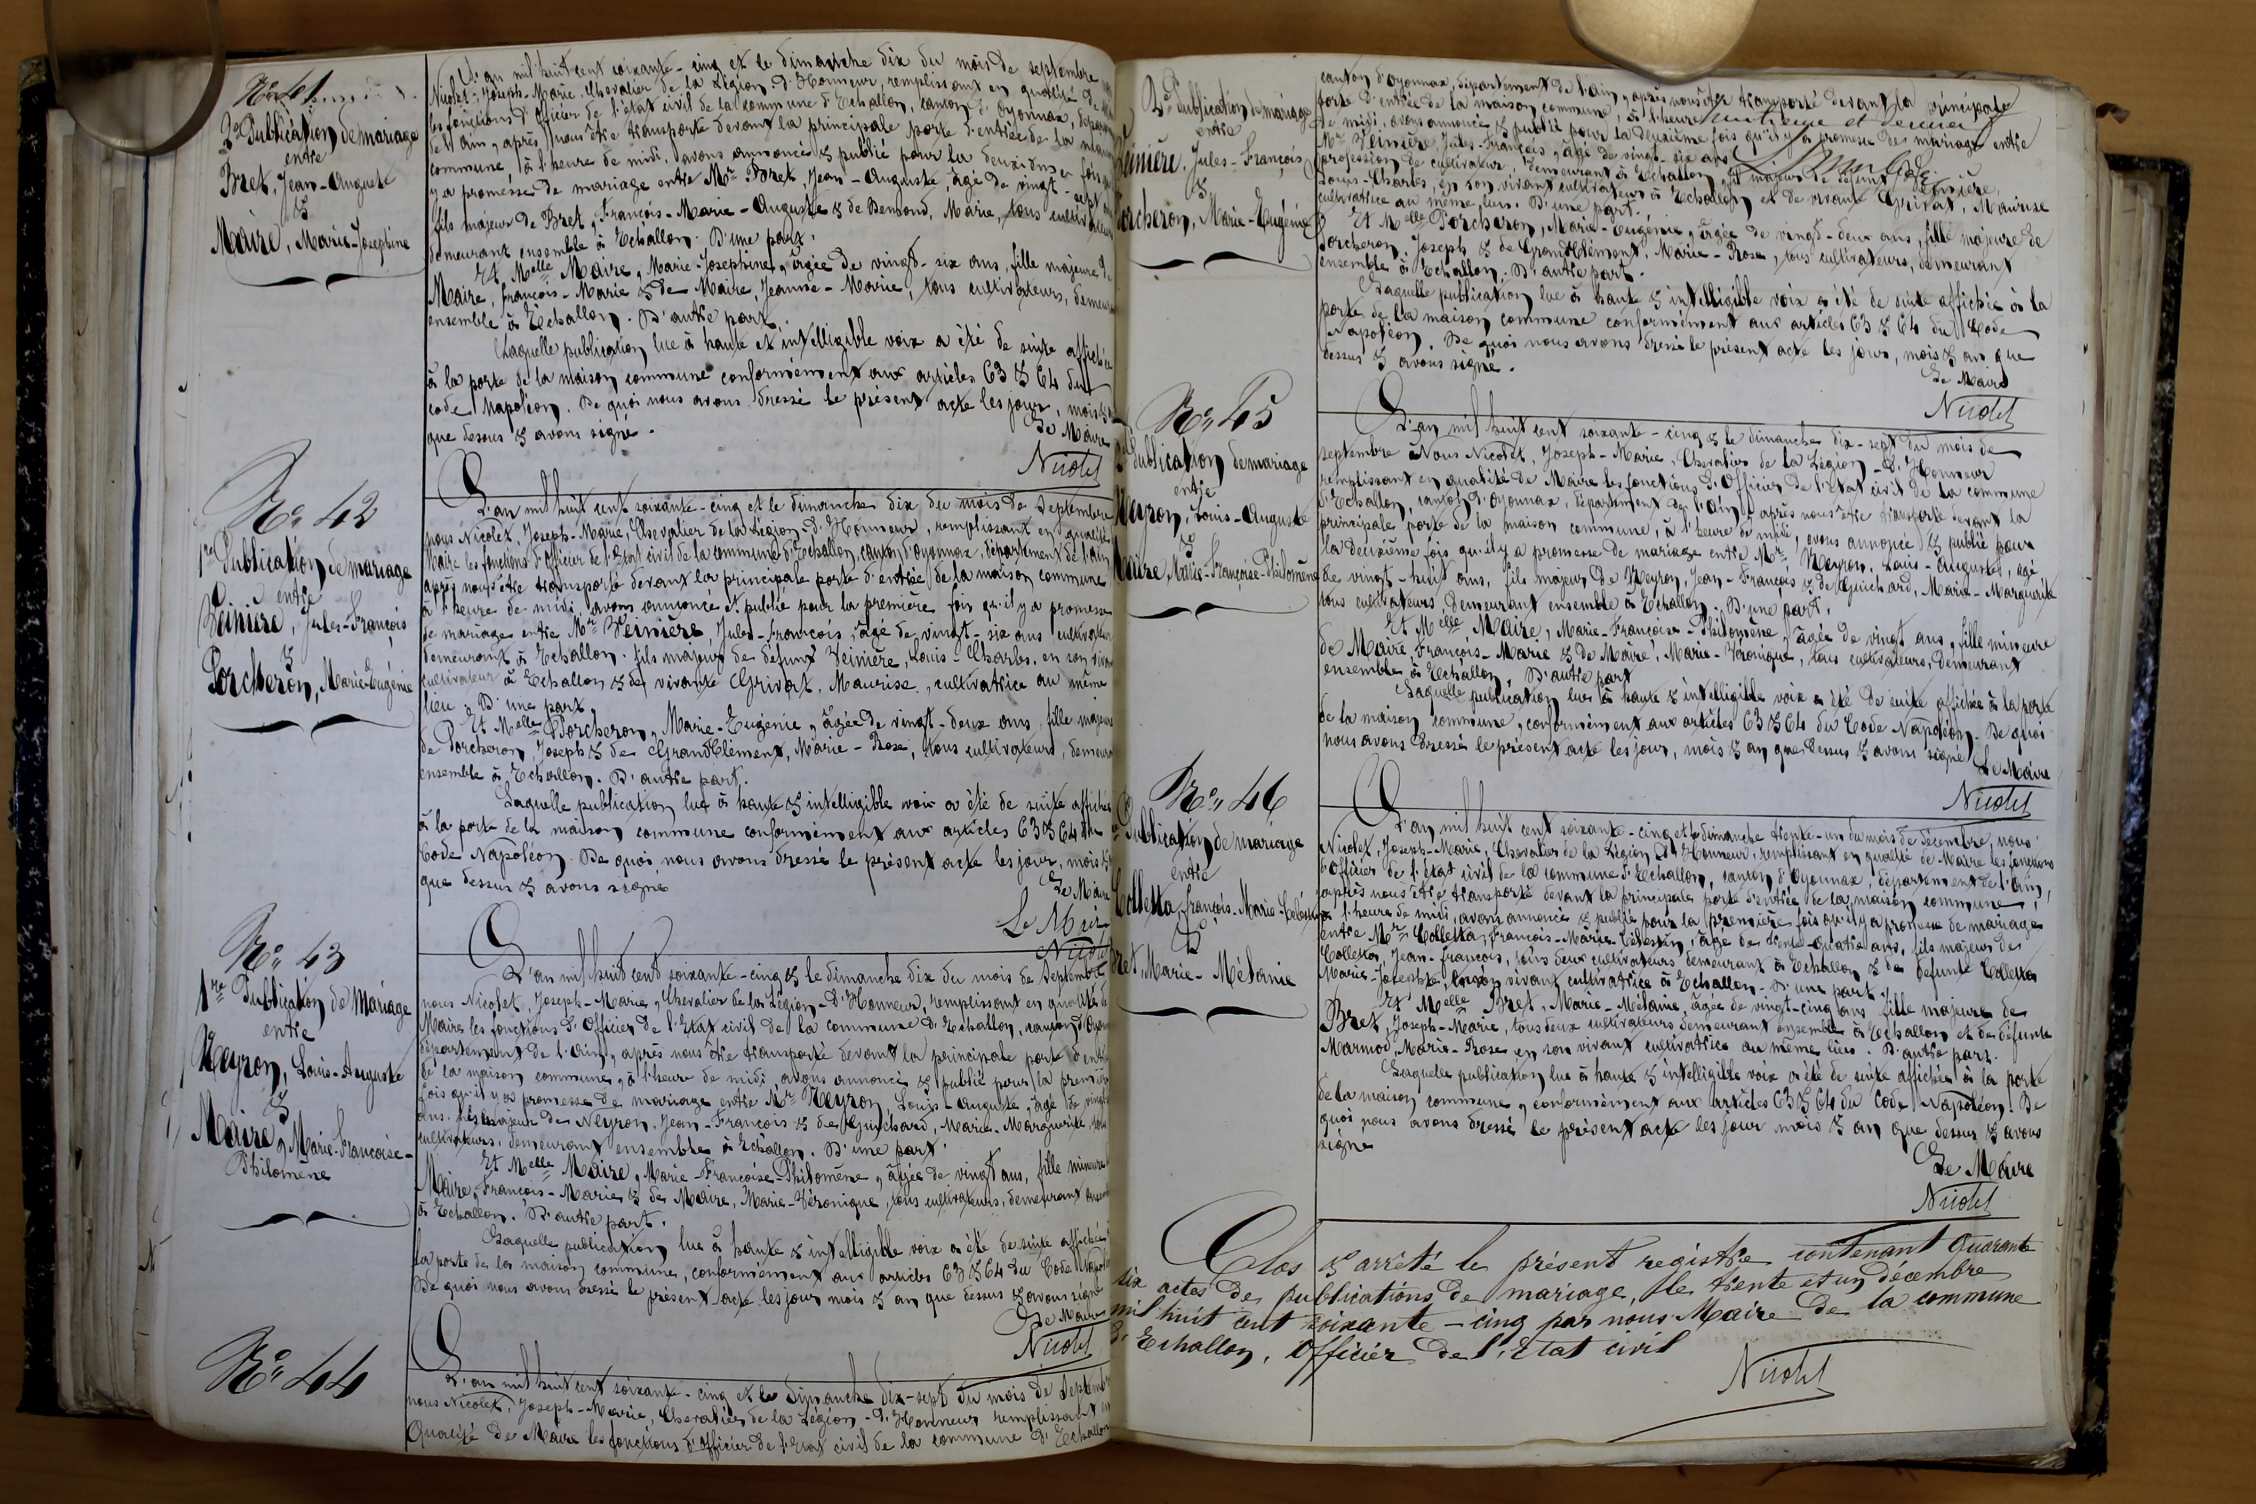 N° 41
2e Publication de mariage
entre
Bret, Jean-Auguste
&
Maire, Marie-Josephine
L'an mil huit cent soixante-cinq et le dimanche dix du mois de septembre
Nicolet, Joseph-Marie, Chevalier de la Légion d'Honneur, remplissant en qualité de
les fonctions d'Officier de l'état civil de la commune d'Echallon, canton d'Oyonnax,
de l'ain, après nous être transporté devant la principale porte d'entrée de la
commune, à l'heure de midi, avons annoncé & publié pour la deuxième fois
y a promesse de mariage entre Mr Bret, Jean-Auguste, âgé de vingt-sept
fils majeur de Bret, François-Marie-Auguste & de Marie, tous cultivateurs
demeurant ensemble à Echallon. D'une part.
Et Melle Maire, Marie-Josephine, âgée de vingt-six ans, fille majeure de
Maire, François-Marie & de Maire, Jeanne-Marie, tous cultivateurs,
ensemble à Echallon. D'autre part.
Laquelle publication lue à haute et intelligible voix a été de suite affichée
à la porte de la maison commune conformément aux articles 63 & 64 du
code Napoléon. De quoi nous avons dressé le présent acte les jour, mois &
que dessus & avons signé.
Le Maire
Nicolet
N° 42
1re Publication de mariage
entre
Veinière, Jules-François
&
Porcheron, Marie-Eugénie
L'an mil huit cent soixante-cinq et le dimanche dix du mois de Septembre
nous Nicolet, Joseph-Marie, Chevalier de la Légion-d'Honneur, remplissant en qualité
Maire les fonctions d'Officier de l'Etat civil de la commune d'Echallon, canton d'oyonnax, département de l'ain
après nous être transporté devant la principale porte d'entrée de la maison commune
à l'heure de midi, avons annoncé et publié pour la première fois qu'il y a promesse
de mariage entre Mr Veinière, Jules-François, âgé de vingt-six ans cultivateur
demeurant à Echallon. fils majeur de défunt Veinière, Louis-Charles, en son vivant
cultivateur à Echallon & de vivante Grivat, Maurise, cultivatrice au même
lieu. D'une part.
Et Melle Porcheron, Marie-Eugénie, âgée de vingt-deux ans, fille majeure
de Porcheron, Joseph & de GrandClément, Marie-Rose, tous cultivateurs,
ensemble à Echallon. D'autre part.
Laquelle publication lue à haute & intelligible voix a été de suite affichée
à la porte de la maison commune conformément aux articles 63 & 64 du
Code Napoléon. De quoi nous avons dressé le présent acte les jour, mois &
que dessus & avons signé
Le Maire
Le Maire
Nicolet
N° 43
1re Publication de Mariage
entre
Neyron, Louis-Auguste
&
Maire, Marie-Françoise-
Philomène
L'an mil huit cent soixante-cinq & le dimanche dix du mois de Septembre
nous Nicolet, Joseph-Marie, Chevalier de la Légion-d'Honneur, remplissant en qualité de
Maire les fonctions d'Officier de l'Etat civil de la commune d'Echallon, canton d'
département de l'ain, après nous être transporté devant la principale porte d'
de la maison commune, à l'heure de midi, avons annoncé & publié pour la première
fois qu'il y a promesse de mariage entre Mr Neyron, Louis-Auguste, âgé de vingt
ans, fils majeur de Neyron, Jean-François & de Guichard, Marie-Marguerite,
cultivateurs, demeurant ensemble à Echallon. D'une part.
Et Melle Maire, Marie-Françoise-Philomène, âgée de vingt ans, fille mineure
Maire, François-Marie & de Maire, Marie-Véronique, tous cultivateurs, demeurant
à Echallon. D'autre part.
Laquelle publication lue à haute & intelligible voix a été de suite affichée
la porte de la maison commune, conformément aux articles 63 & 64 du Code
De quoi nous avons dressé le présent acte les jour mois & an que dessus & avons signé
Le Maire
Nicolet
N° 44
L'an mil huit cent soixante-cinq et le Dimanche dix-sept du mois de Septembre
nous Nicolet, Joseph-Marie, Chevalier de la Légion-d'Honneur remplissant en
Qualité de Maire les fonctions d'Officier de l'Etat civil de la commune d'Echallon
2e Publication de mariage
entre
Veinière, Jules-François
&
Porcheron, Marie-Eugénie
canton d'Oyonnax, département de l'ain, après nous être transporté devant la principale
porte d'entrée de la maison commune, à l'heure
de midi, avons annoncé & publié pour la deuxième fois qu'il y a promesse de mariage entre
Mr Veinière, Jules-François, âgé de vingt-six ans
profession de cultivateur, demeurant à Echallon, fils majeur de défunt Veinière,
Louis-Charles, en son vivant cultivateur à Echallon et de vivante Grivat, Maurise
cultivatrice au même lieu. D'une part.
Et Melle Porcheron, Marie-Eugénie, âgée de vingt-deux ans, fille majeure de
Porcheron, Joseph & de GrandClément, Marie-Rose, tous cultivateurs, demeurant
ensemble à Echallon. D'autre part.
Laquelle publication lue à haute & intelligible voix a été de suite affichée à la
porte de la maison commune conformément aux articles 63 & 64 du Code
Napoléon. De quoi nous avons dressé le présent acte les jour, mois & an que
dessus & avons signé.
Le Maire
Nicolet
N° 45
Publication de mariage
entre
Neyron, Louis-Auguste
&
Maire, Marie-Françoise-Philomène
L'an mil huit cent soixante-cinq & le dimanche dix-sept du mois de
septembre Nous Nicolet, Joseph-Marie, Chevalier de la Légion-d'Honneur
remplissant en qualité de Maire les fonctions d'Officier de l'état civil de la commune
d'Echallon, canton d'Oyonnax, département de l'Ain, après nous être transporté devant la
principale porte de la maison commune, à l'heure de midi, avons annoncé & publié pour
la deuxième fois qu'il y a promesse de mariage entre Mr Neyron, Louis-Auguste, âgé
de vingt-huit ans, fils majeur de Neyron, Jean-François & de Guichard, Marie-Marguerite
tous cultivateurs, demeurant ensemble à Echallon. D'une part.
Et Melle Maire, Marie-Françoise-Philomène, âgée de vingt ans, fille mineure
de Maire, François-Marie & de Maire, Marie-Véronique, tous cultivateurs, demeurant
ensemble à Echallon. D'autre part
Laquelle publication lue à haute & intelligible voix a été de suite affichée à la porte
de la maison commune, conformément aux articles 63 & 64 du Code Napoléon. De quoi
nous avons dressé le présent acte les jour, mois & an que dessus & avons signé
Le Maire
Nicolet
N° 46
Publication de mariage
entre
Colletta, François-Marie-Célestin
&
Bret, Marie-Mélanie
L'an mil huit cent soixante-cinq et le dimanche trente-un du mois de décembre, nous
Nicolet, Joseph-Marie, Chevalier de la Légion d'Honneur, remplissant en qualité de Maire les fonctions
d'Officier de l'état civil de la commune d'Echallon, canton d'Oyonnax, département de l'Ain,
après nous être transporté devant la principale porte d'entrée de la maison commune,
à l'heure de midi, avons annoncé & publié pour la première fois qu'il y a promesse de mariage
entre Mr Colletta, François-Marie-Célestin, âgé de trente-quatre ans, fils majeur de
Colletta, Jean-François, tous deux cultivateurs demeurant à Echallon & de défunte Colletta
Marie-Josephte, en son vivant cultivatrice à Echallon. D'une part.
Et Melle Bret, Marie-Mélanie, âgée de vingt-cinq ans fille majeure de
Bret, Joseph-Marie, tous deux cultivateurs demeurant ensemble à Echallon et de défunte
Marmod, Marie-Rose en son vivant cultivatrice au même lieu. D'autre part.
Laquelle publication lue à haute & intelligible voix a été de suite affichée à la porte
de la maison commune, conformément aux articles 63 & 64 du Code Napoléon. De
quoi nous avons dressé le présent acte les jour mois & an que dessus & avons
signé
Le Maire
Nicolet
Clos & arrêté le présent registre contenant Quarante
six actes de publications de mariage, le trente et un décembre
mil huit cent soixante-cinq par nous Maire de la commune
d'Echallon, Officier de l'Etat civil
Nicolet